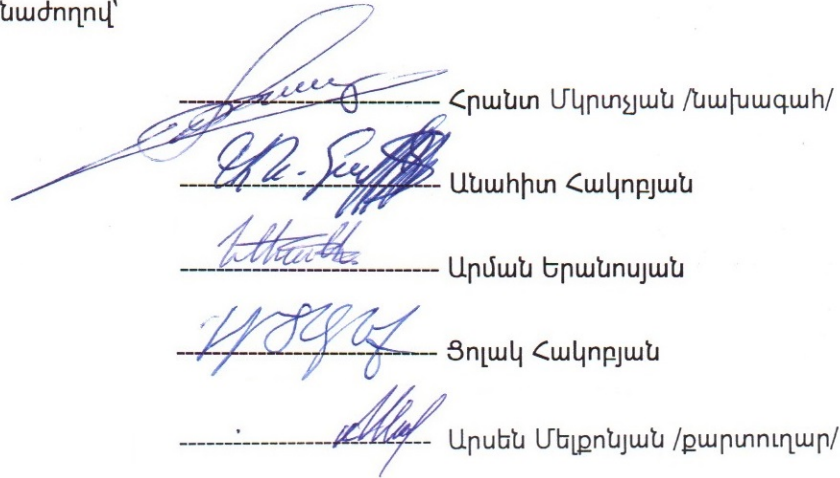 նաժողով՝
Հրանտ Մկրտչյան /նախագահ/
Անահիտ Հակոբյան
Արման Երանոսյան
Ցոլակ Հակոբյան
Արսեն Մելքոնյան /քարտուղար/